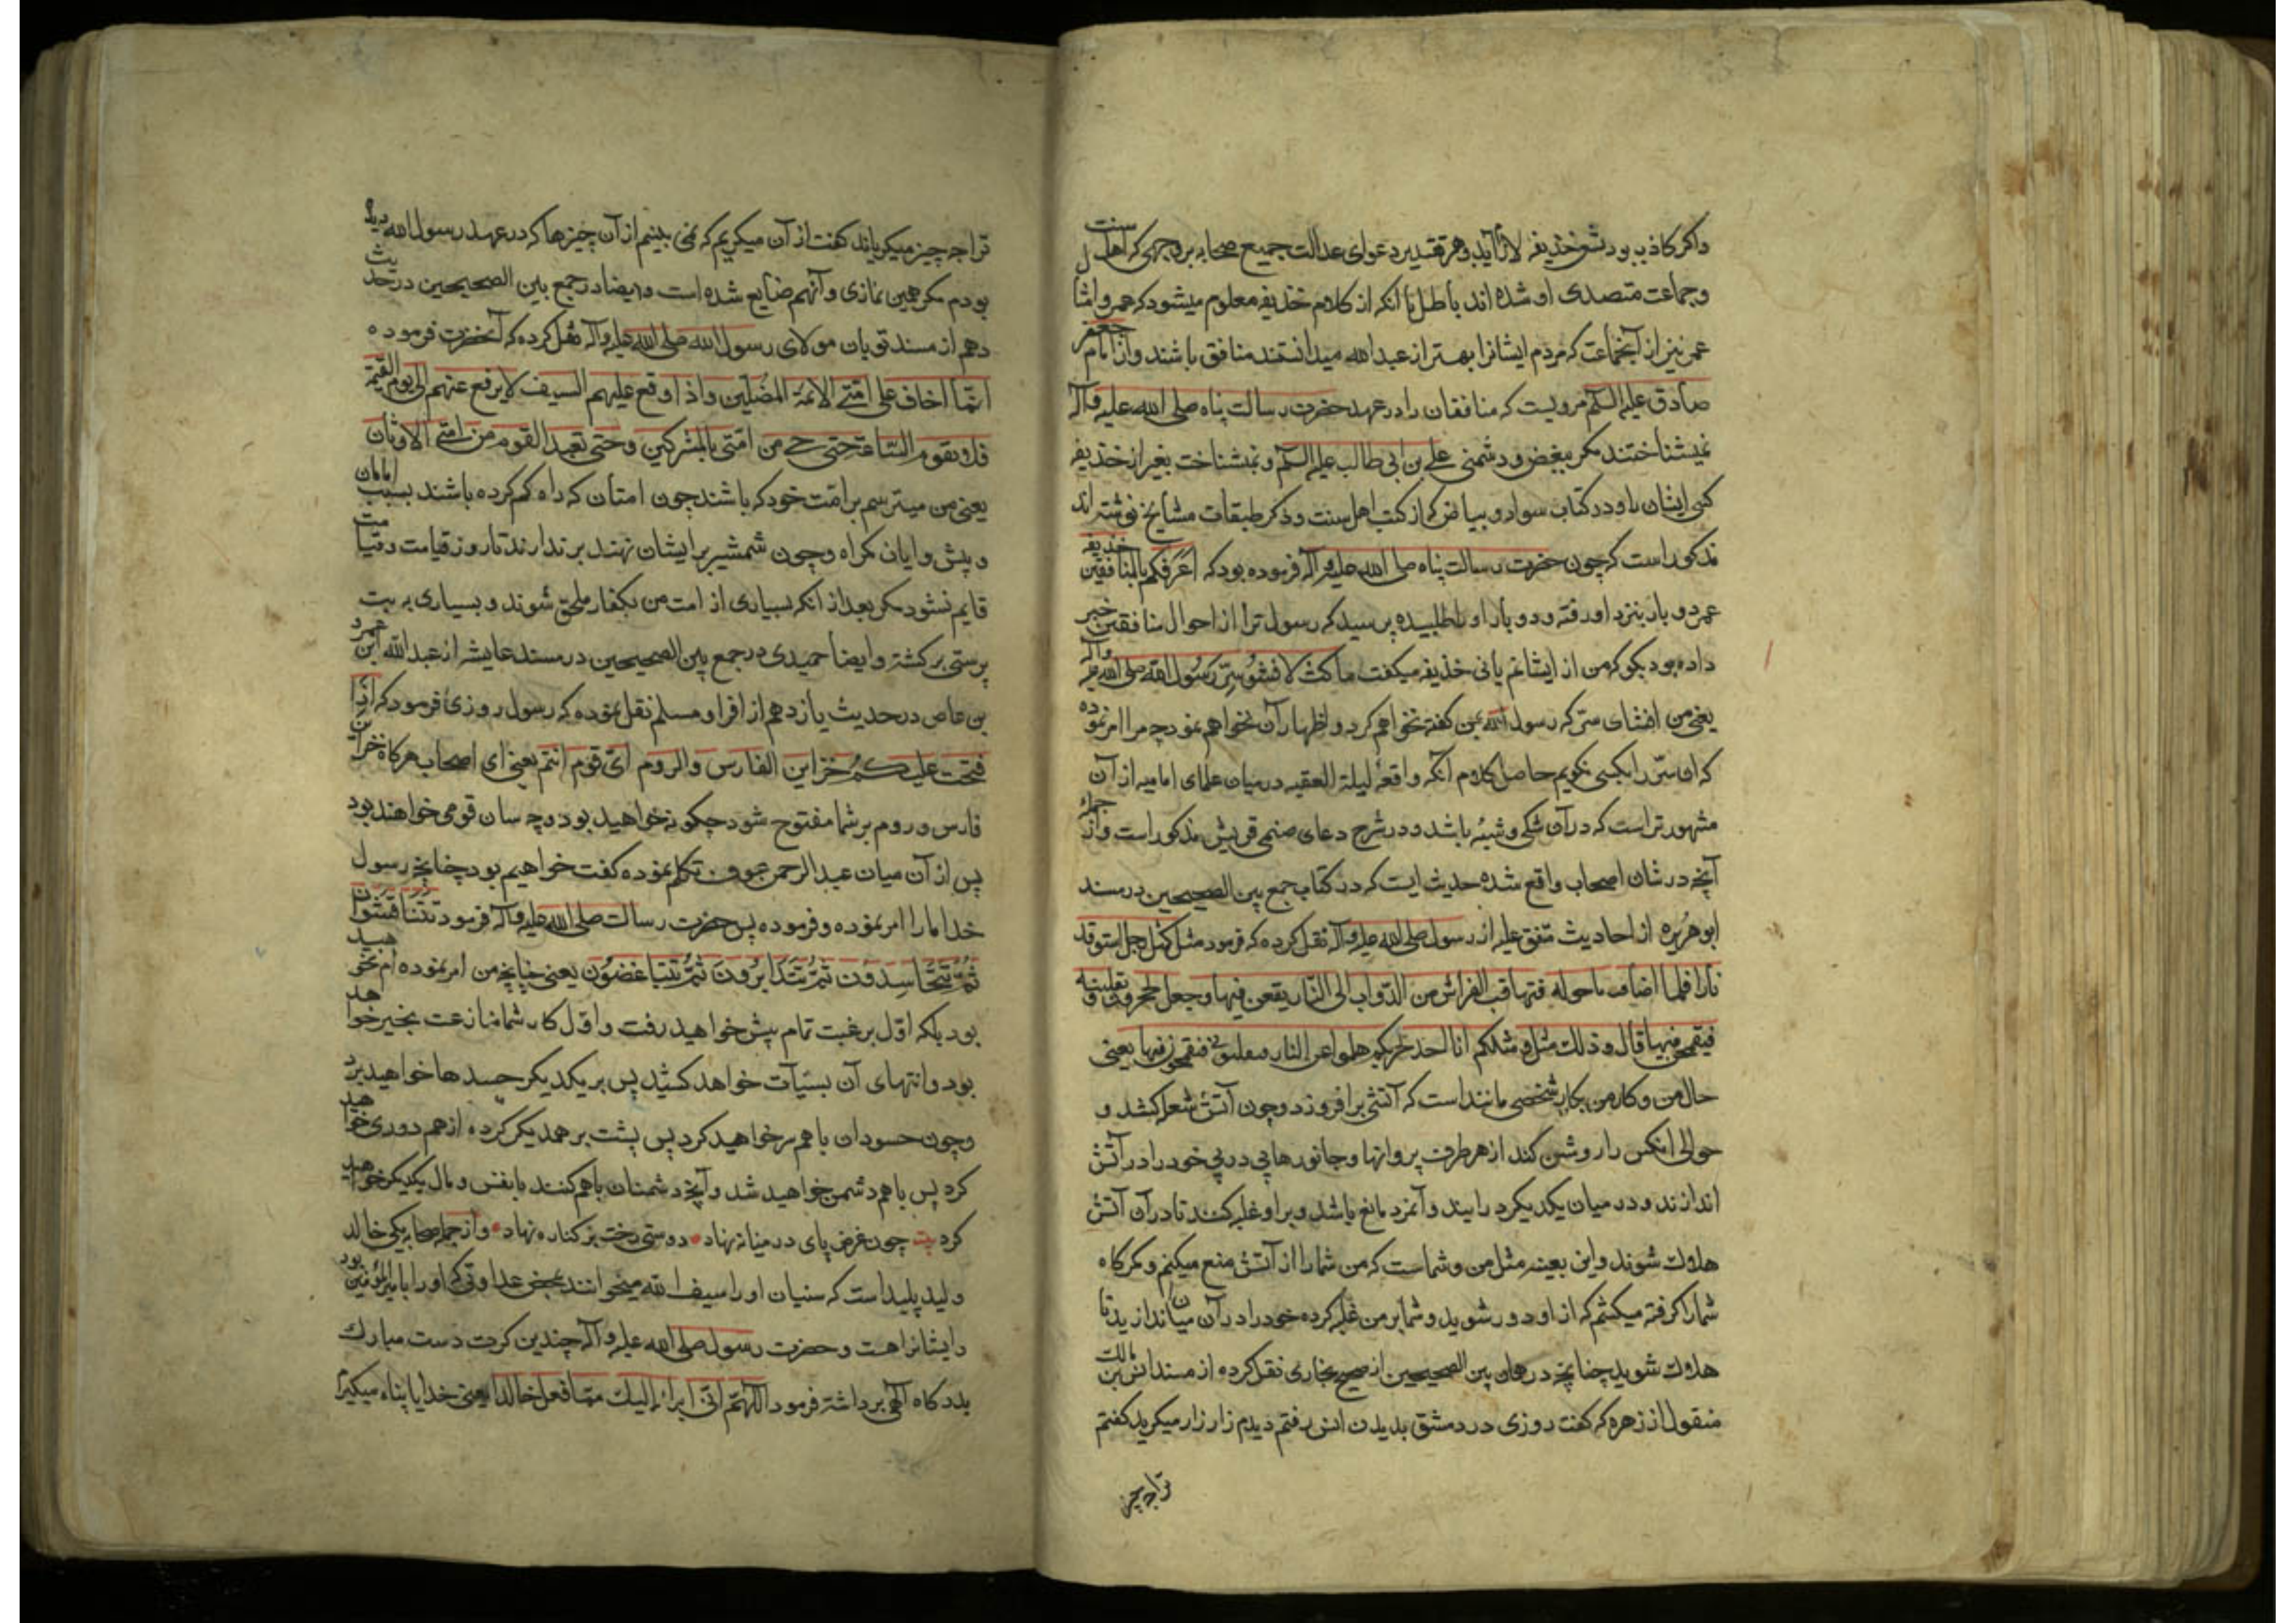 واکر کاذب بود تشنیع خذیفه لازم آید و هر تقدیر دعوای عدالت جمیع صحابه بر وجهی که اهل سنت
وجماعت متصدی او شده اند باطل با آنکه از کلام خذیفه معلوم میشود که عمر و امثال
عمر نیز از آنجماعت که مردم ایشانرا بهتر از عبدالله میدانستند منافق باشند واز امام جعفر
صادق علیه السلم مرویست که منافقان را در عهد حضرت رسالت پناه صلی الله علیه وآله
نمیشناختند مکر ببغض و دشمنی علی بن ابی طالب علیه السلم و نمیشناخت بغیر از خذیفه
کسی ایشان را و در کتاب سواد و بیاض که از کتب اهل سنت و ذکر طبقات مشایخ نوشته اند
مذکور است که چون حضرت رسالت پناه صلی الله علیه وآله فرموده بود که اعرفکم بالمنافقین خذیفه
عمر دو بار بنزد او رفته و دو بار او را طلبیده پرسید که رسول ترا از احوال منافقین خبر
داده بود بکو که من از ایشانم یا نی خذیفه میکفت ما کنت لافشو سر رسول الله صلی الله علیه وآله
یعنی من افشای سری که رسول الله بمن کفته نخواهم کرد و اظهار آن نخواهم نمود چه مرا امر نموده
که این سر را بکسی نکویم حاصل کلام آنکه واقعهٔ لیلة العقبه در میان علمای امامیه از آن
مشهورتر است که در آن شکی و شبهه باشد و در شرح دعای صنمی قریش مذکور است واز جمله
آنچه در شان اصحاب واقع شده حدیث ایست که در کتاب جمع بین الصحیحین در مسند
ابوهریره از احادیث متفق علیه از رسول صلی الله علیه وآله نقل کرده که فرمود مثلی کمثل رجل استوقد
نارا فلما اضاءت ما حوله فتهاقب الفراش من الدواب الی النار یقعن فیها وجعل یحجرهن و یغلبنه
فیقتحمن فیها قال و ذلك مثلی و مثلکم انا آخذ بحجزکم هلموا عن النار فیقتحمون فیها یعنی
حال من و کار من بکار شخصی مانند است که آتشی بر افروزد و چون آتش شعله کشد و
حوالی آنکس را روشن کند از هر طرف پروانها و جانورها پی در پی خود را در آتش
اندازند و در میان یکدیکر در آیند و آنمرد مانع باشد و بر او غلبه کنند تا در آن آتش
هلاك شوند و این بعینه مثل من و شماست که من شما را از آتش منع میکنم و کمرکاه
شما را کرفته میکشم که از او دور شوید و شما بر من غلبه کرده خود را در آن میاندازید تا
هلاك شوید چنانچه در همان بین الصحیحین از صحیح بخاری نقل کرده از مسند انس بن مالك
منقول از زهره که کفت روزی در دمشق بدیدن انس رفتم دیدم زار زار میکرید کفتم
ترا چه چیز
ترا چه چیز میکریاند کفت از آن میکریم که نمی بینم از آن چیزها که در عهد رسول الله دیده
بودم مکر همین نمازی و آنهم ضایع شده است وایضا در جمع بین الصحیحین در حدیث
دهم از مسند ثوبان مولای رسول الله صلی الله علیه وآله نقل کرده که آنحضرت فرموده
انما اخاف علی امتی الائمة المضلین و اذا وقع علیهم السیف لا یرفع عنهم الی یوم القیمة
فلا یقوم الساعة حتی حی من امتی بالمشرکین و حتی تعبد القوم من امتی الاوثان
یعنی من میترسم بر امت خود که باشند چون امتان که راه کم کرده باشند بسبب امامان
و پیش وایان کمراه و چون شمشیر بر ایشان نهند بر ندارند تا روز قیامت و قیامت
قایم نشود مکر بعد از آنکه بسیاری از امت من بکفار ملحق شوند و بسیاری به بت
پرستی برکشته و ایضا حمیدی در جمع بین الصحیحین در مسند عایشه از عبدالله ابن عمرو
بن عاص در حدیث یازدهم از افراد مسلم نقل نموده که رسول روزی فرمود که اذا
فتحت علیکم خزاین الفارس والروم ای قوم انتم یعنی ای اصحاب هرکاه خزاین
فارس و روم بر شما مفتوح شود چکونه خواهید بود و چه سان قومی خواهند بود
پس از آن میان عبدالرحمن عوف تکلم نموده کفت خواهیم بود چنانچه رسول
خدا ما را امر نموده و فرموده پس حضرت رسالت صلی الله علیه وآله فرمود تتنافسون
ثم تتحاسدون ثم تتدابرون ثم تتباغضون یعنی چنانچه من امر نموده ام نخواهید
بود بلکه اول برغبت تمام پیش خواهید رفت و اول کار شما منازعت بخیر خواهد
بود و انتهای آن بسیآت خواهد کشید پس بر یکدیکر حسدها خواهید برد
و چون حسودان با هم بر خواهید کرد پس پشت بر همدیکر کرده از هم دوری خواهید
کرد پس با هم دشمن خواهید شد و آنچه دشمنان با هم کنند با نفس و مال یکدیکر خواهید
کرد بیت چون غرض پای در میانه نهاد • دوستی رخت بر کناره نهاد • و از جمله صحابه یکی خالد
ولید پلید است که سنیان او را سیف الله میخوانند بمحض عداوتی که او را با امیرالمؤمنین بود
و ایشانرا هست و حضرت رسول صلی الله علیه وآله چندین کرت دست مبارك
بدرکاه آلهی برداشته فرمود اللهم انی ابراء الیك مما فعل خالدا یعنی خدایا پناه میکیرم